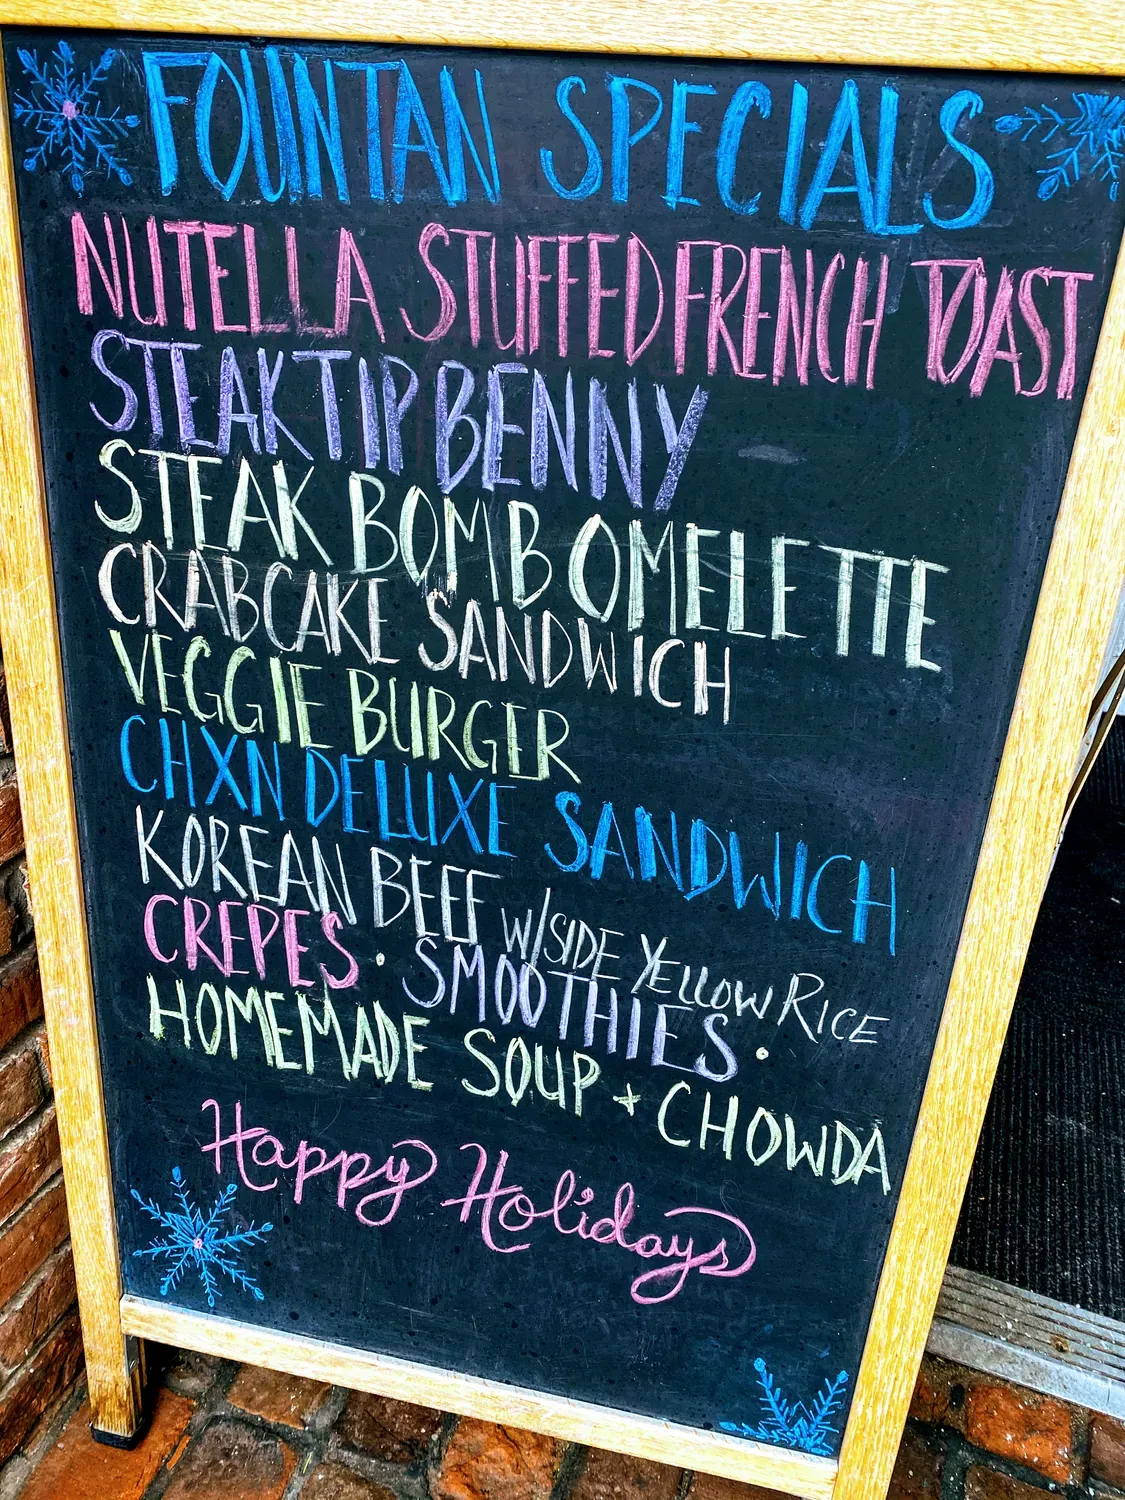 FOUNTAN SPECIALS
NUTELLA STUFFED FRENCH TOAST
STEAK TIP BENNY
STEAK BOMB OMELETTE
CRABCAKE SANDWICH
VEGGIE BURGER
CHXN DELUXE SANDWICH
KOREAN BEEF W/SIDE YELLOW RICE
CREPES · SMOOTHIES ·
HOMEMADE SOUP + CHOWDA
Happy Holidays